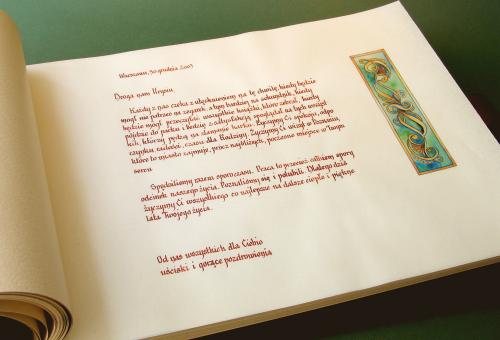 Warszawa, 30 grudnia 2003
Droga nam Ireno,
Każdy z nas czeka z utęsknieniem na tę chwilę, kiedy będzie
mógł nie patrzeć na zegarek, a tym bardziej na sekundnik, kiedy
będzie mógł przeczytać wszystkie książki, które zebrał, kiedy
pójdzie do parku i będzie z satysfakcją spoglądał na tych wciąż
ich, którzy pędzą na złamanie karku. Życzymy Ci spokoju, odpo
czynku, radości, czasu dla Rodziny. Życzymy Ci wciąż w Poznaniu,
które to miasto zajmuje, prócz najbliższych, poczesne miejsce w Twym
sercu.
Spędziliśmy razem sporo czasu. Praca to przecież całkiem spory
odcinek naszego życia. Poznaliśmy się i polubili. Dlatego dziś
życzymy Ci wszystkiego co najlepsze na dalsze ciepłe i piękne
lata Twojego życia.
Od nas wszystkich dla Ciebie
uściski i gorące pozdrowienia